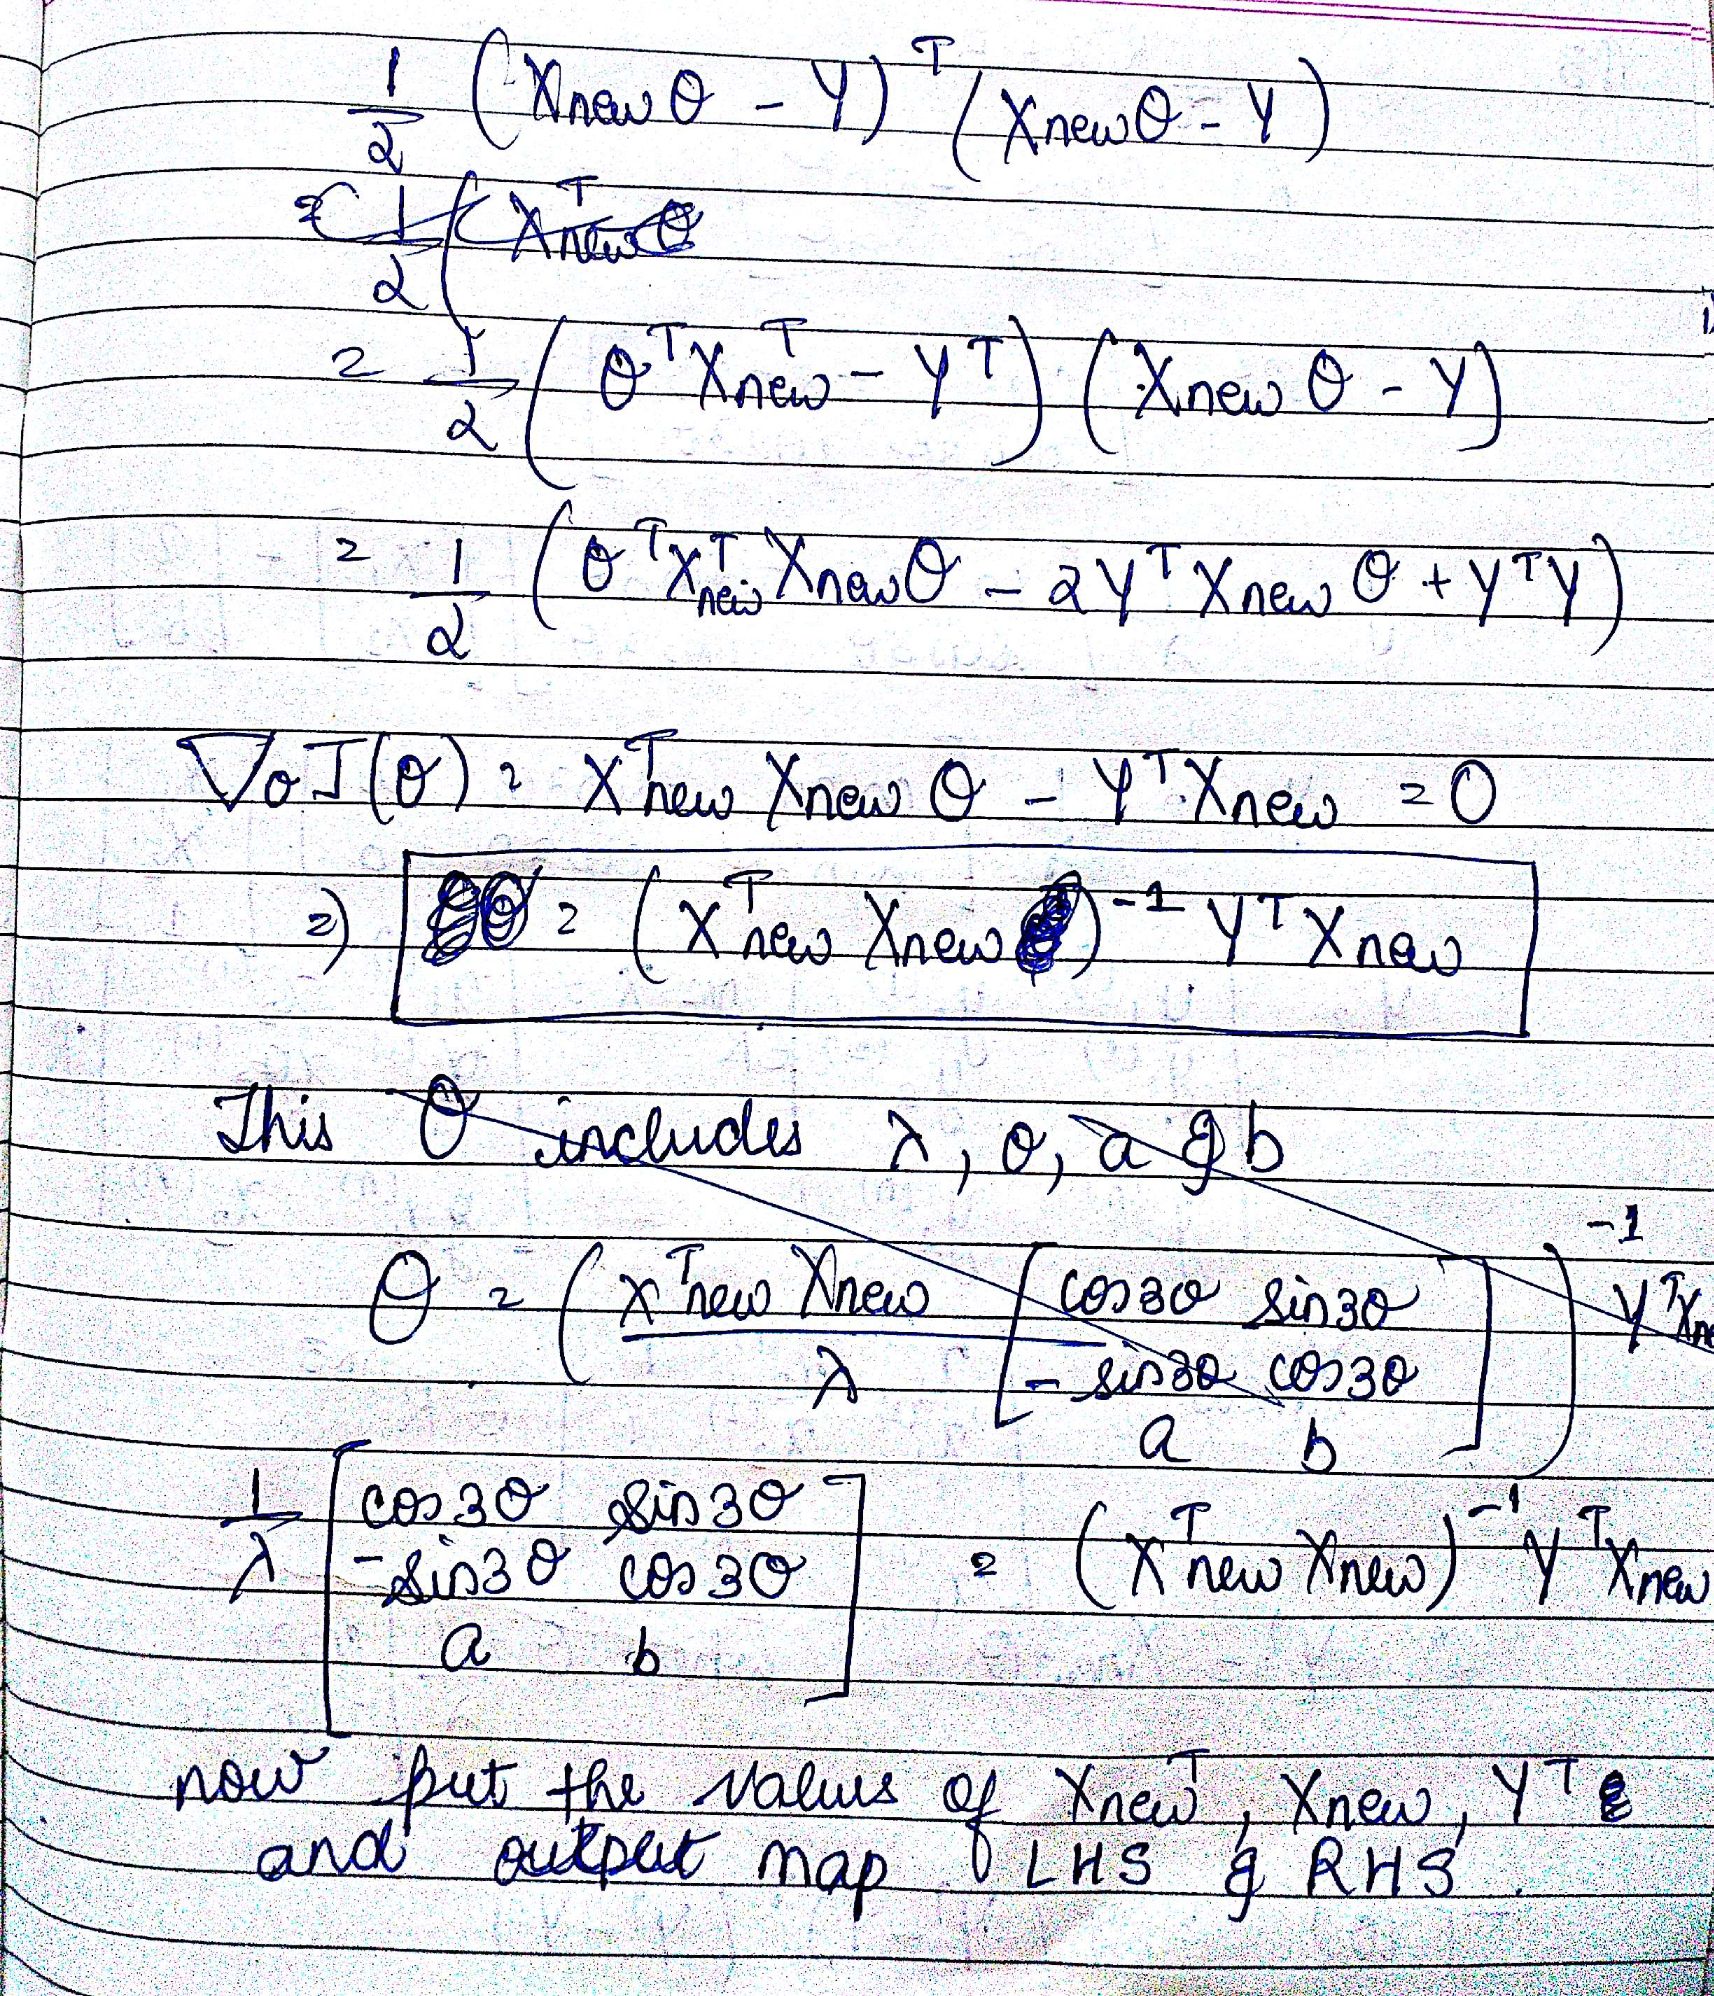 1/2 (Xnew θ - Y)^T (Xnew θ - Y)
= 1/2 ( X^T new θ
= 1/2 (θ^T X^T new - Y^T) (Xnew θ - Y)
= 1/2 (θ^T X^T new Xnew θ - 2Y^T Xnew θ + Y^T Y)
∇θ J(θ) = X^T new Xnew θ - Y^T Xnew = 0
⇒) = (X^T new Xnew)^-1 Y^T Xnew
This θ includes λ, θ, a & b
θ = (X^T new Xnew / λ [cos3θ sin3θ
-sin3θ cos3θ
a b])^-1 Y^T Xne
1/λ [cos3θ sin3θ
-sin3θ cos3θ
a b] = (X^T new Xnew)^-1 Y^T Xnew
now put the values of Xnew^T, Xnew, Y^T
and output map LHS & RHS.